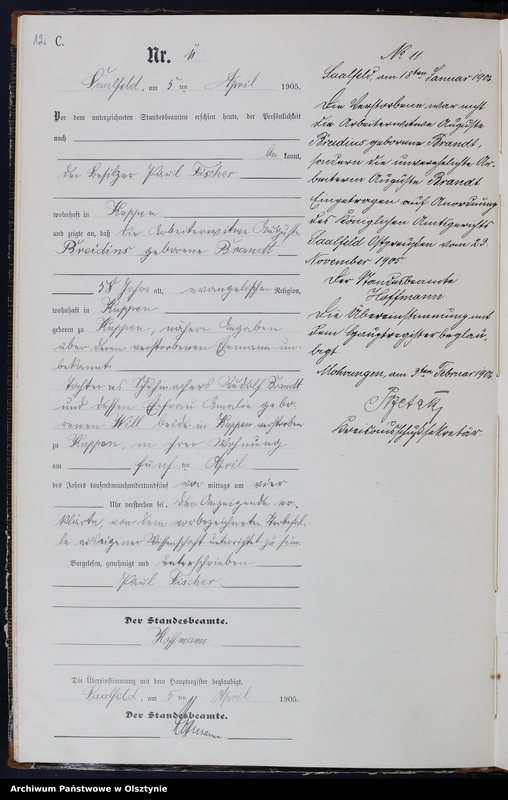 12.
C.
Nr. 11
Saalfeld, am 5ten April 1905.
Vor dem unterzeichneten Standesbeamten erschien heute, der Persönlichkeit
nach
be kannt,
der Besitzer Paul Fischer
wohnhaft in Kuppen
und zeigte an, daß die Arbeiterwitwe Auguste
Breidins geborene Brandt
58 Jahre alt, evangelischer Religion,
wohnhaft in Kuppen
geboren zu Kuppen, nähere Angaben
über deren verstorbenen Ehemann un-
bekannt
Tochter des Schuhmachers Rudolf Brandt
und dessen Ehefrau Amalie gebo-
renen Will beide in Kuppen verstorben
zu Kuppen, in ihrer Wohnung
am fünf ten April
des Jahres tausendneunhundertundfünf vor mittags um vier
Uhr verstorben sei. Der Anzeigende er-
klärte, von dem vorbezeichneten Sterbefal-
le aus eigener Wissenschaft unterrichtet zu sein.
Vorgelesen, genehmigt und unterschrieben
Paul Fischer
Der Standesbeamte.
Hoffmann
Die Übereinstimmung mit dem Hauptregister beglaubigt.
Saalfeld, am 5ten April 1905.
Der Standesbeamte.
Hoffmann
No 11
Saalfeld, am 18ten Januar 1906.
Die Verstorbene war nicht
die Arbeiterwitwe Auguste
Breidins geborene Brandt,
sondern die unverehelichte Ar-
beiterin Auguste Brandt
Eingetragen auf Anordnung
des Königlichen Amtsgerichts
Saalfeld Ostpreußen vom 23
November 1905
Der Standesbeamte
Hoffmann
Die Übereinstimmung mit
dem Hauptregister beglau-
bigt
Mohrungen, am 3ten Februar 1906
Kreisausschußsekretär.
Archiwum Państwowe w Olsztynie